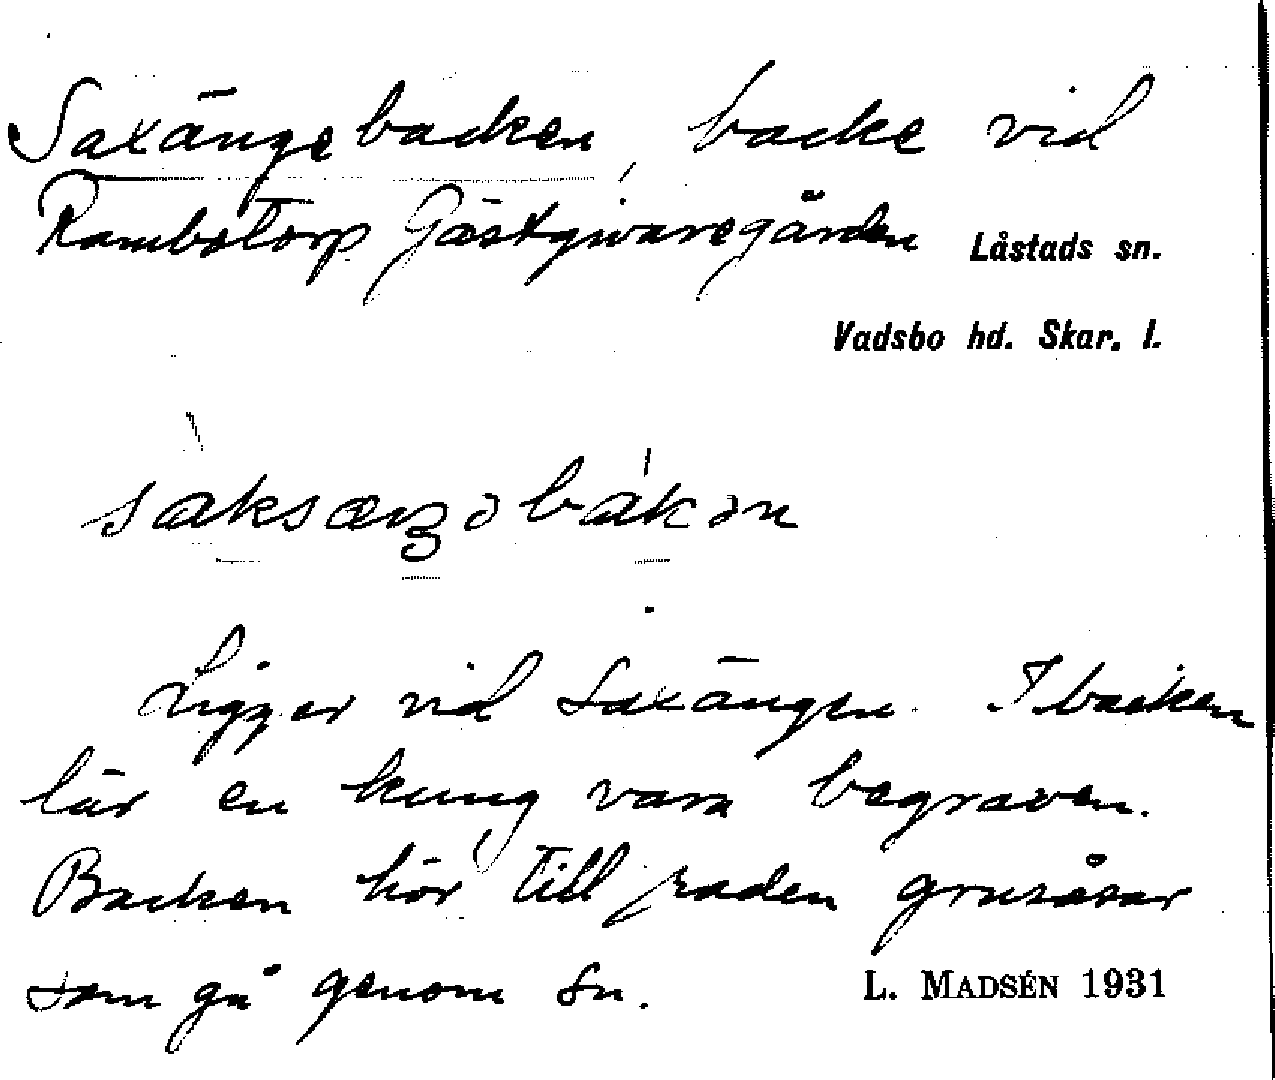 Saxängebacken, backe vid
Rambotorp Gästgivaregården Låstads sn.
Vadsbo hd. Skar. l.
Ligger vid Saxängen. I backen
lär en kung vara begraven.
Backen hör till raden grusåsar
som gå genom sn. L. MADSÉN 1931